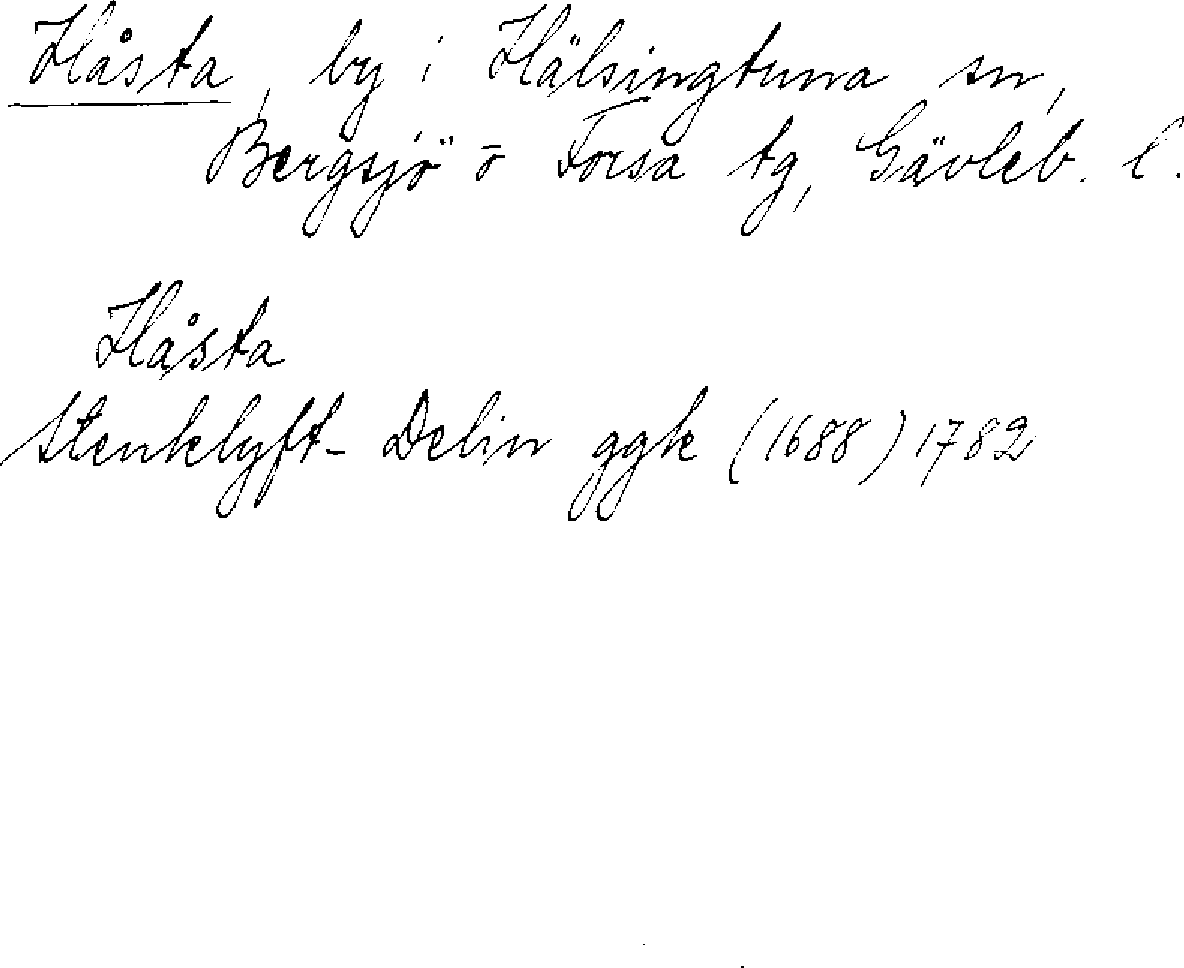 Håsta, by i Hälsingtuna sn,
Bergsjö o Forsa tg, Gävleb. l.
Håsta
Stenklyft- Delin ggk (1688) 1782